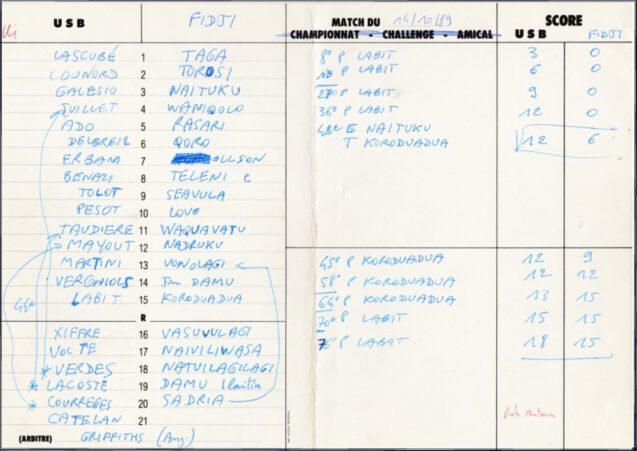 USB FIDJI MATCH DU 14/10/89 SCORE
CHAMPIONNAT - CHALLENGE - AMICAL USB FIDJI
LASCUBÉ 1 TAGA
LOUNORD 2 TOROSI
GALESIO 3 NAITUKU
JUILLET 4 WANIQOLO
ADO 5 RASARI
DELBREIL 6 QORO
ERBANI 7 OLLSON
BENAZI 8 TELENI c
TOLOT 9 SEAVULA
PESOT 10 LOVO
TAUDIERE 11 WAQUAVATU
MAYOUT 12 NADRUKU
MARTINI 13 VONOLAGI
VERGNIOLS 14 Tom DAMU
LABIT 15 KORODUADUA
R
XIFFRE 16 VASUVULAGI
VOLTE 17 NAIVILIWASA
VERDES 18 NATUILAGILAGI
LACOSTE 19 DAMU Ilaitia
COURREGES 20 SADRIA
CATELAN 21
(ARBITRE) GRIFFITHS (Ang.)
8e P LABIT 3 0
P LABIT 6 0
27e P LABIT 9 0
36e P LABIT 12 0
E NAITUKU
T KORODUADUA 12 6
45e P KORODUADUA 12 9
58e P KORODUADUA 12 12
64e P KORODUADUA 13 15
70e P LABIT 15 15
P LABAT 18 15